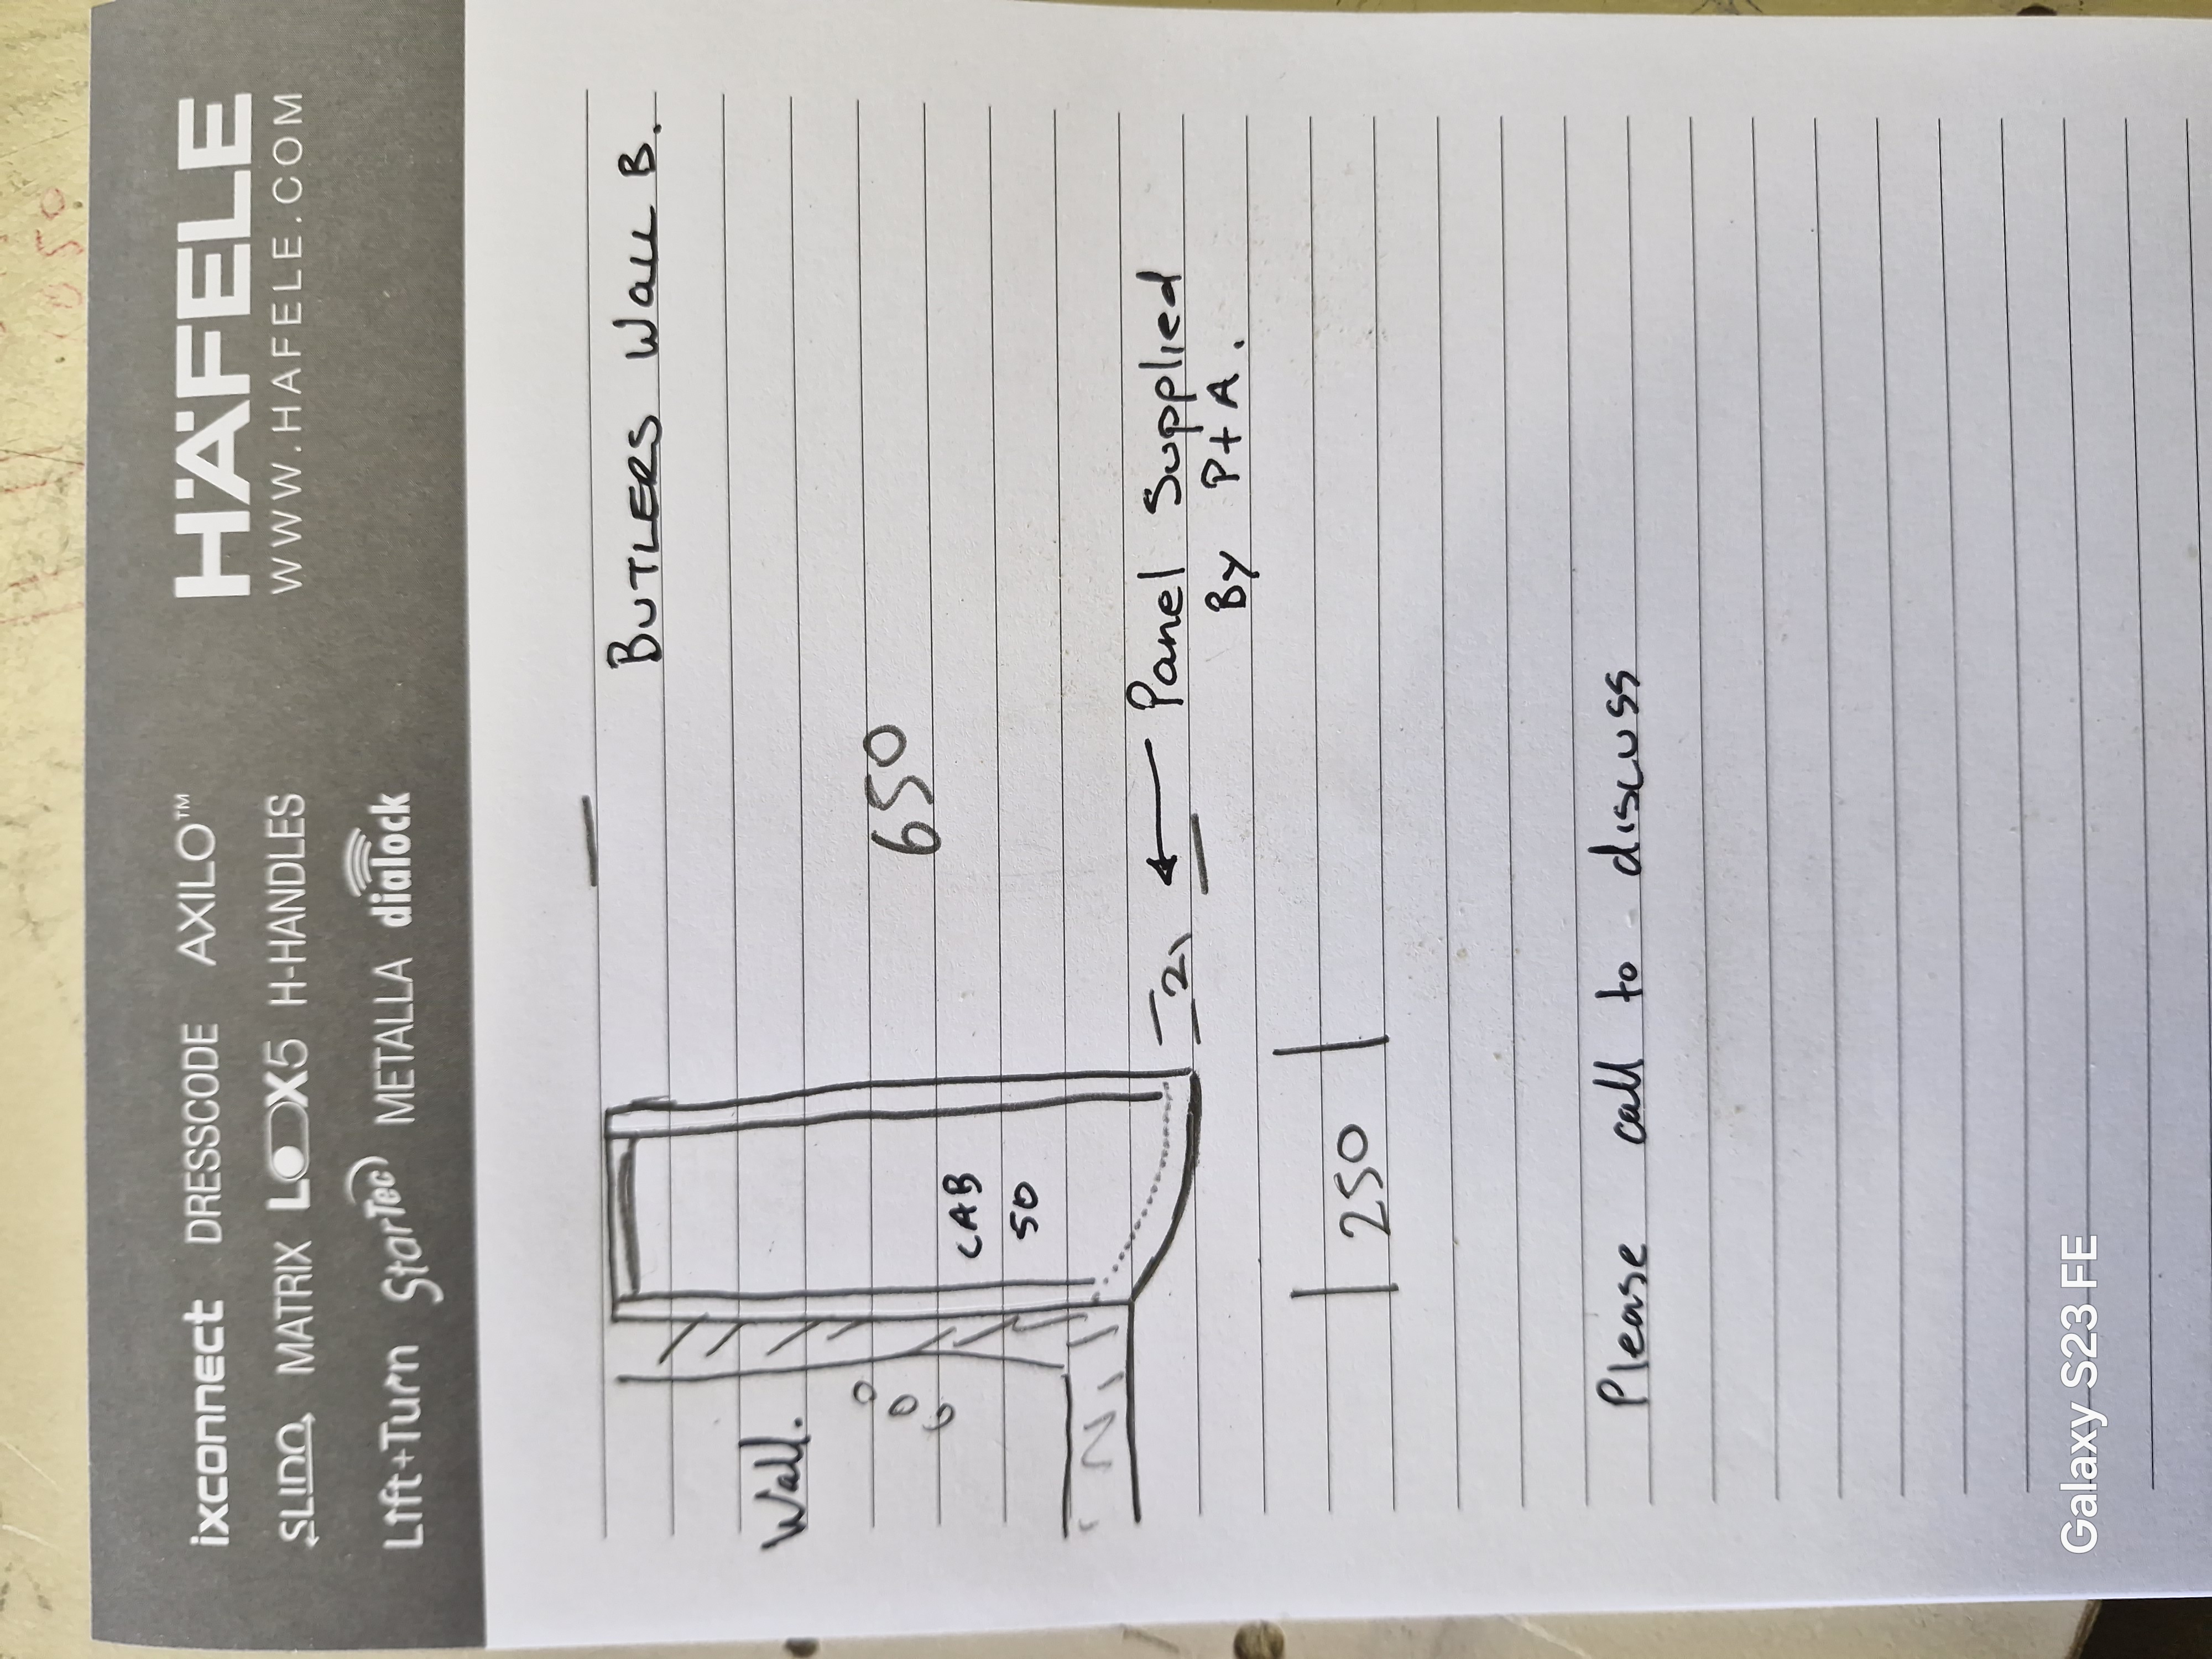 ixconnect DRESSCODE AXILO™
SLIDO MATRIX LOOX5 H-HANDLES
Lift+Turn StarTec METALLA dialock
HÄFELE
WWW.HAFELE.COM
BUTLERS WALL B.
Wall.
650
CAB
50
Panel Supplied
By P+A.
250
Please call to discuss
Galaxy S23 FE